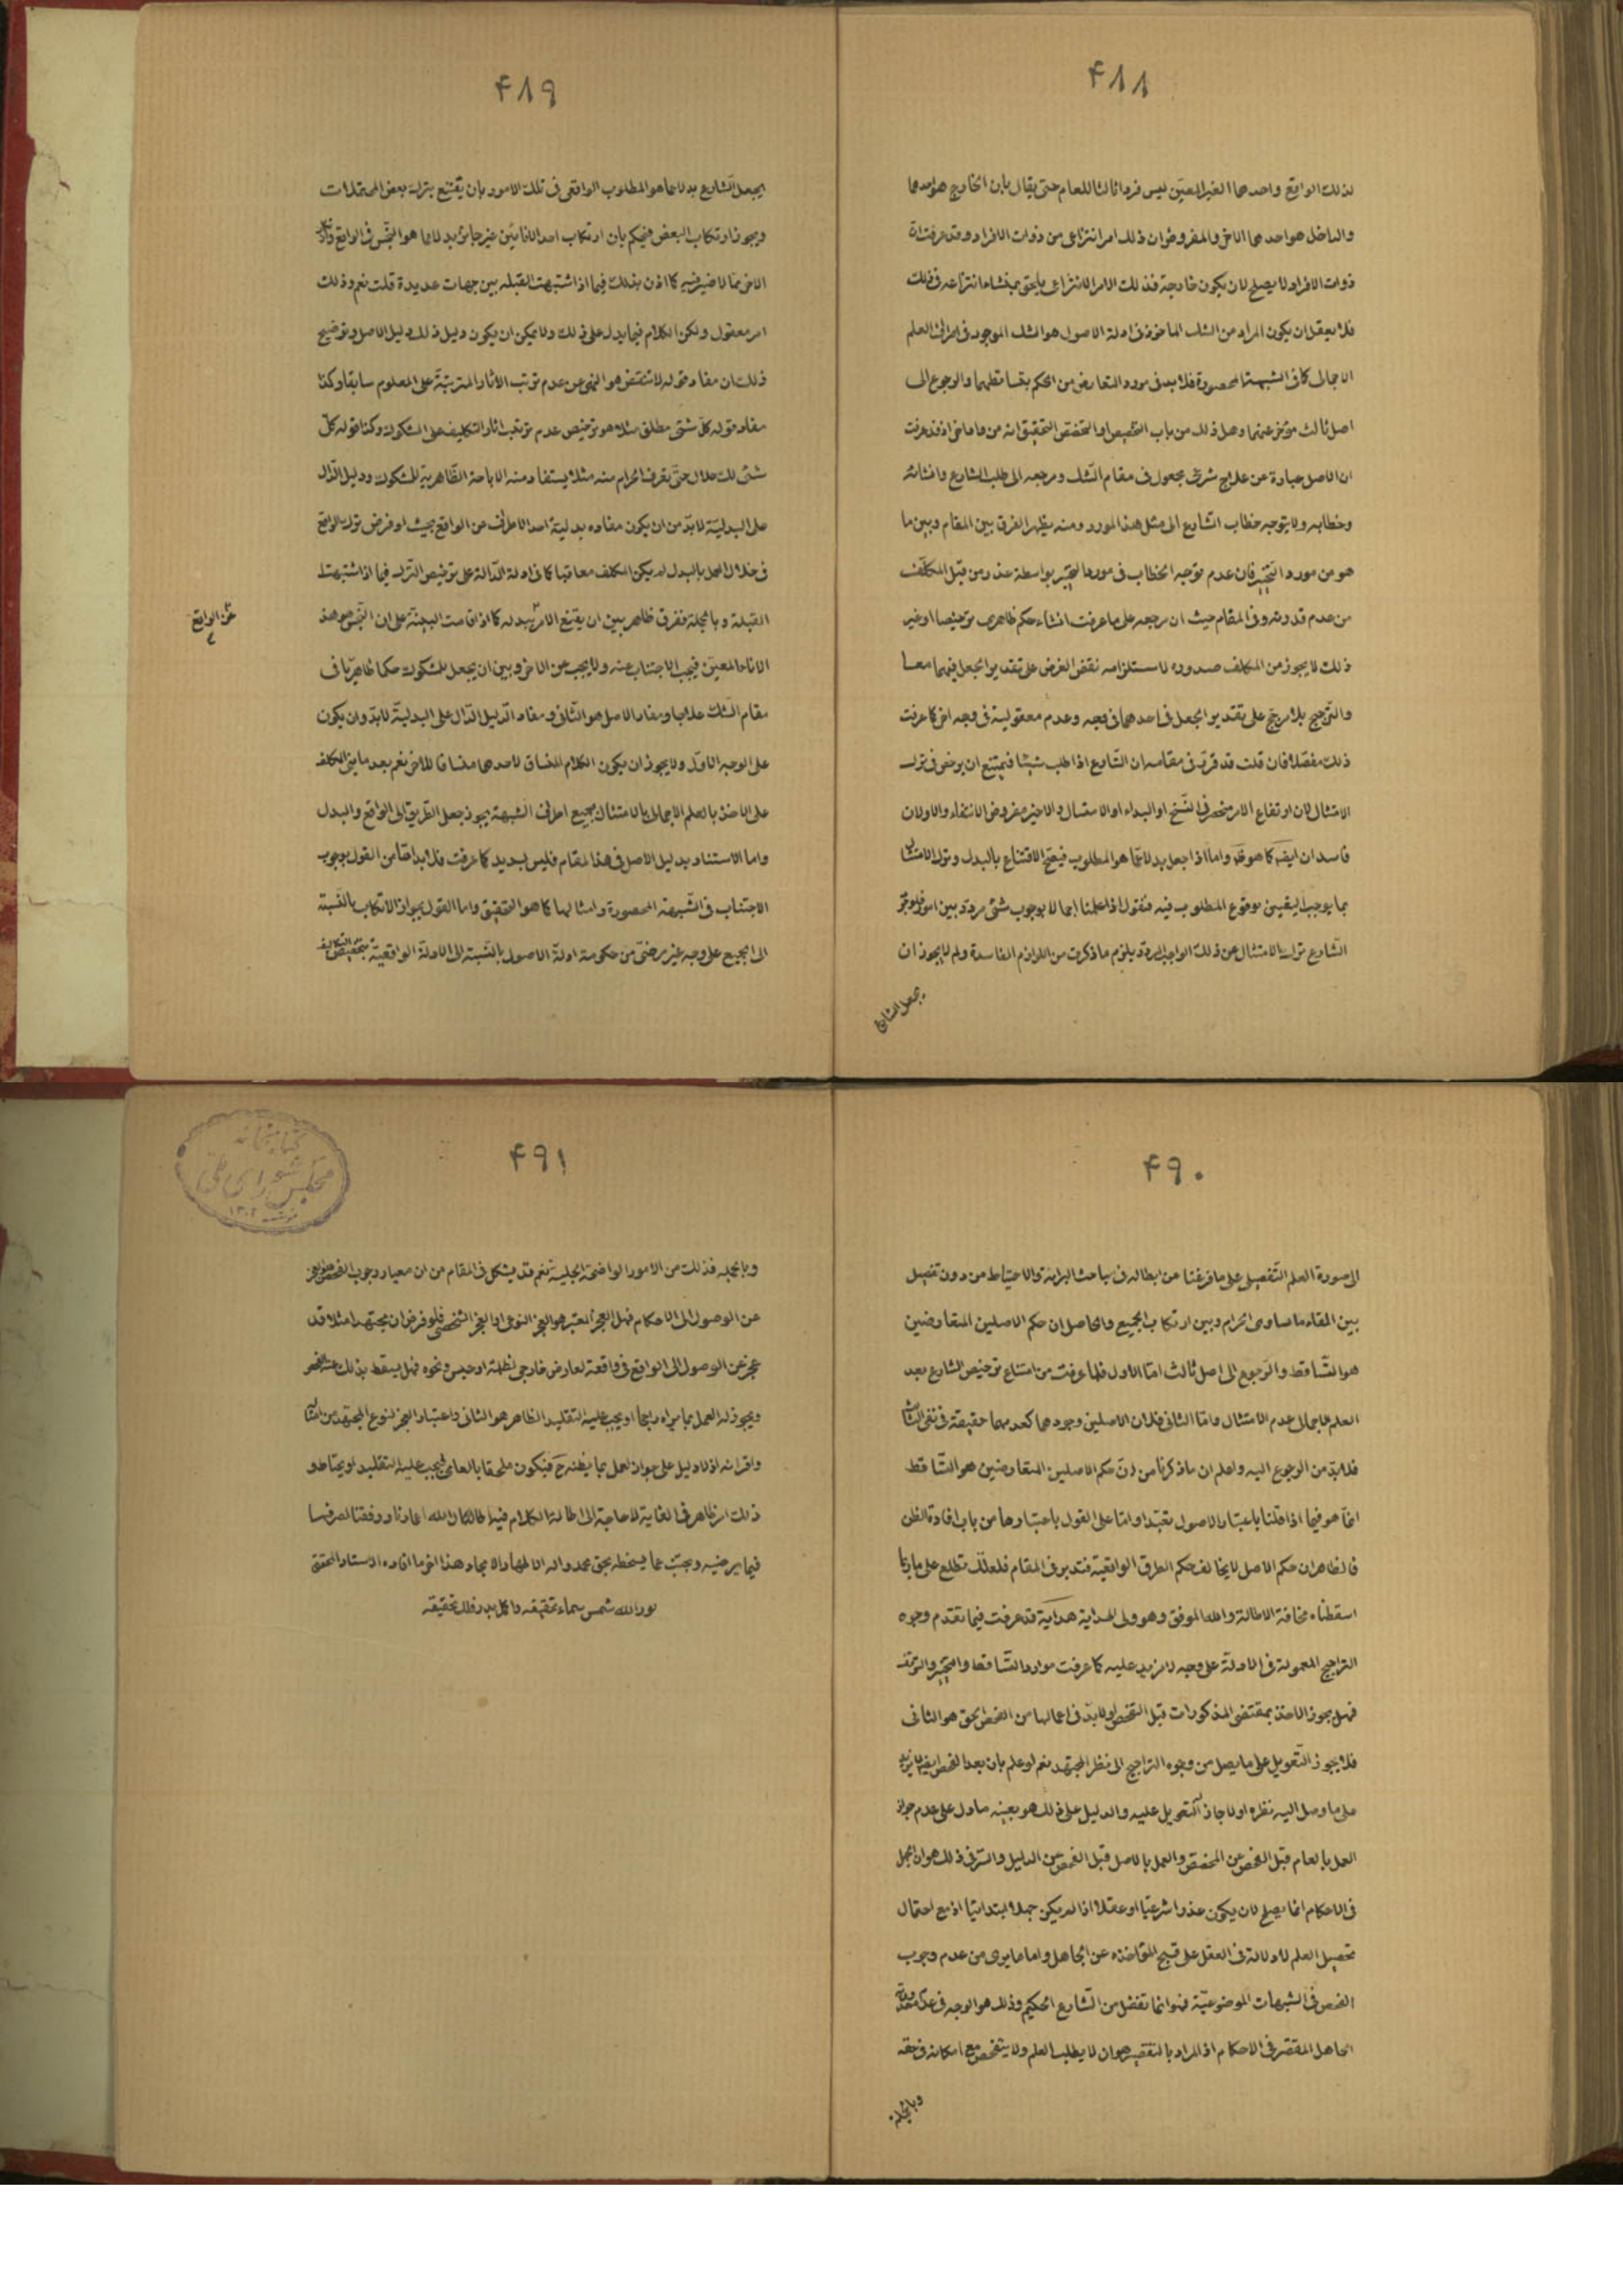 ۴۸۸
لذلك الواقع واحدهما الغير المعيّن ليس فردا ثالثا للعام حتى يقال بان الخارج هو احدهما
والداخل هو احدهما الاخر والمفروض ان ذلك امر انتزاعى من ذوات الافراد وقد عرفت ان
ذوات الافراد لا يصلح لان يكون خارجة فذلك الامر الانتزاعى يلحق بمنشاء انتزاعه فى ذلك
فلا يعقل ان يكون المراد من الشك الماخوذ فى ادلة الاصول هو الشك الموجود فى اطراف العلم
الاجمالى كما فى الشبهة المحصورة فلا بد فى مورد التعارض من الحكم بتساقطهما والرجوع الى
اصل ثالث مؤخر عنهما وهل ذلك من باب التخصيص او التخصص التحقيق انه من ما ما اذ قد عرفت
ان الاصل عبارة عن علاج شرعى مجعول فى مقام الشك ومرجعه الى طلب الشارع وانشائه
وخطابه ولا يتوجه خطاب الشارع الى مثل هذا المورد ومنه يظهر الفرق بين المقام وبين ما
هو من مورد التخيير فان عدم توجه الخطاب فى مورد التخيير بواسطة عذر من قبل المكلّف
من عدم قدرته وفى المقام حيث ان مرجعه على ما عرفت انشاء حكم ظاهرى ترخيصا او غير
ذلك لا يجوز من المكلف صدوره لاستلزامه نقض الغرض على تقدير الجعل فيهما معا
والترجيح بلا مرجح على تقدير الجعل فى احدهما فى وجه وعدم معقوليته فى وجه اخر كما عرفت
ذلك مفصّلا فان قلت قد قرّر فى مقامه ان الشارع اذا طلب شيئا فيمتنع ان يرخص فى ترك
الامتثال لان ارتفاع الامر منحصر فى النسخ او البداء او الامتثال والاخير مفروض الانتفاء والاولان
فاسدان ايضا كما هو ظ واما اذا جعل بدلا عما هو المطلوب فيصح الاقتناع بالبدل وترك الامتثال
بما يوجب اليقين بوقوع المطلوب فيه فنقول اذا علمنا اجمالا بوجوب شئ مردد بين امور فلو جوّز
الشارع ترك الامتثال عن ذلك الواجب المردد يلزم ما ذكرت من اللازم الفاسدة ولم لا يجوز ان
يجعل الشارع
۴۸۹
يجعل الشارع بدلا عما هو المطلوب الواقعى فى تلك الامور بان يقتنع بترك بعض المحتملات
ويجوز ارتكاب البعض فيحكم بان ارتكاب احد الانائين غير جائز بدلا عما هو النجس فى الواقع
الاخر مما لا ضير فيه كما اذن بذلك فيما اذا اشتبهت القبلة بين جهات عديدة قلت نعم وذلك
امر معقول ولكن الكلام فيما يدل على ذلك ولا يمكن ان يكون دليل ذلك دليل الاصل وتوضيح
ذلك ان مفاد قوله لا تنقض هو النهى عن عدم ترتب الاثار المترتبة على المعلوم سابقا وكذا
مفاد قوله كل شئ مطلق مثلا هو ترخيص عدم ترتيب اثار التكليف على المشكوك وكذا قوله كل
شئ لك حلال حتى تعرف الحرام منه مثلا يستفاد منه الاباحة الظاهرية للمشكوك ودليل الدّال
على البدليّة لا بدّ من ان يكون مفاده بدلية احد الاطراف عن الواقع بحيث لو فرض ترك الواقع
فى خلال العمل بالبدل لم يكن المكلف معاقبا كما فى ادلة الدّالة على ترخيص الترك فيما اذا اشتبهت
القبلة وبالجملة ففرق ظاهر بين ان يقنع الامر ببدله كما اذا قامت البينة على ان النجس هو هذ
عن الواقع
الاناء المعيّن فيجب الاجتناب عنه ولا يجب عن الاخر وبين ان يجعل للمشكوك حكما ظاهريّا فى
مقام الشك علاجا ومفاد الاصل هو الثانى ومفاد الدّليل الدّال على البدليّة لا بدّ وان يكون
على الوجه الاوّل ولا يجوز ان يكون الكلام المساق لاحدهما مساقا للاخر نعم بعد ما بنى المكلف
على الاخذ بالعلم الاجمالى بالامتثال بجميع اطراف الشبهة يجوز جعل الطريق الى الواقع والبدل
واما الاستناد بدليل الاصل فى هذا المقام فليس بسديد كما عرفت فلا بد اما من القول بوجوب
الاجتناب فى الشبهة المحصورة وامثالها كما هو التحقيق واما القول بجواز الارتكاب بالنسبة
الى الجميع على وجه غير مرضىّ من حكومة ادلة الاصول بالنسبة الى الادلة الواقعية بتخصيص التكاليف
۴۹۰
الى صورة العلم التفصيلى على ما فرغنا عن ابطاله فى مباحث البرائة والاحتياط من دون تفصيل
بين ابقاء ما يساوى الحرام وبين ارتكاب الجميع والحاصل ان حكم الاصلين المتعارضين
هو التّساقط والرّجوع الى اصل ثالث امّا الاول فلما عرفت من امتناع ترخيص الشارع بعد
العلم الاجمالى عدم الامتثال وامّا الثانى فلان الاصلين وجودهما كعدمهما حقيقة فى نفى الثالث
فلا بدّ من الرجوع اليه واعلم ان ما ذكرنا من انّ حكم الاصلين المتعارضين هو التّساقط
انّما هو فيما اذا قلنا باعتبار الاصول تعبّدا وامّا على القول باعتبارها من باب افادة الظن
فالظاهر ان حكم الاصل لا يخالف حكم الطرق الواقعية فتدبر فى المقام فلعلّك تطلع على ما
اسقطناه مخافة الاطالة والله الموفق وهو ولى الهداية هداية قد عرفت فيما تقدم وجوه
التراجيح المعمولة فى الادلّة على وجه لا مزيد عليه كما عرفت موارد التّساقط والتخيير والتوقف
فهل يجوز الاخذ بمقتضى المذكورات قبل الفحص او لا بدّ فى اعمالها من الفحص الحق هو الثانى
فلا يجوز التّعويل على ما يصل من وجوه التراجيح الى نظر المجتهد نعم لو علم بان بعد الفحص ايضا لا يزيد
على ما وصل اليه نظره اولا جاز التعويل عليه والدليل على ذلك هو بعينه ما دل على عدم جواز
العمل بالعام قبل الفحص عن المخصّص والعمل بالاصل قبل الفحص عن الدليل والسّر فى ذلك هو ان الجهل
فى الاحكام انما يصلح لان يكون عذرا شرعيّا او عقلا اذا لم يكن جهلا ابتدائيا اذ مع احتمال
تحصيل العلم لا دلالة فى العقل على قبح المؤاخذه عن الجاهل واما ما يرى من عدم وجوب
الفحص فى الشبهات الموضوعيّة فهو انما تفضل من الشّارع الحكيم وذلك هو الوجه فى عدم معذورية
الجاهل المقصّر فى الاحكام اذ المراد بالتقصير هو ان لا يطلب العلم ولا يتفحص مع امكانه فى حقه
وبالجملة
۴۹۱
كتابخانه
مجلس شوراى ملى
۱۳۰۲
وبالجملة فذلك من الامور الواضحة الجلية نعم قد يشكل فى المقام من ان معيار وجوب الفحص هو العجز
عن الوصول الى الاحكام فهل العجز المعتبر هو العجز النوعى او العجز الشخصى فلو فرض ان مجتهدا مثلا قد
عجز عن الوصول الى الواقع فى واقعة لعارض خارجى لظلمة او حبس ونحوه فهل يسقط بذلك عنه الفحص
ويجوز له العمل بما يراه راجحا او يجب عليه التقليد الظاهر هو الثانى واعتبار العجز لنوع المجتهد من امثاله
واقرانه اذ لا دليل على جواز العمل بما يظنه ح فيكون ملحقا بالعامى فيجب عليه التقليد او يحتاط و
ذلك امر ظاهر فى الغاية لا حاجة الى اطالة الكلام فيه اطال الله اعمارنا ووفقنا لصرفها
فيما يرضيه ويجنّب عما يسخطه بحق محمد واله الاطهار الامجاد وهذا اخر ما افاده الاستاد المحقق
نور الله شمس سماء تحقيقه واكمل بدر فلك تحقيقه